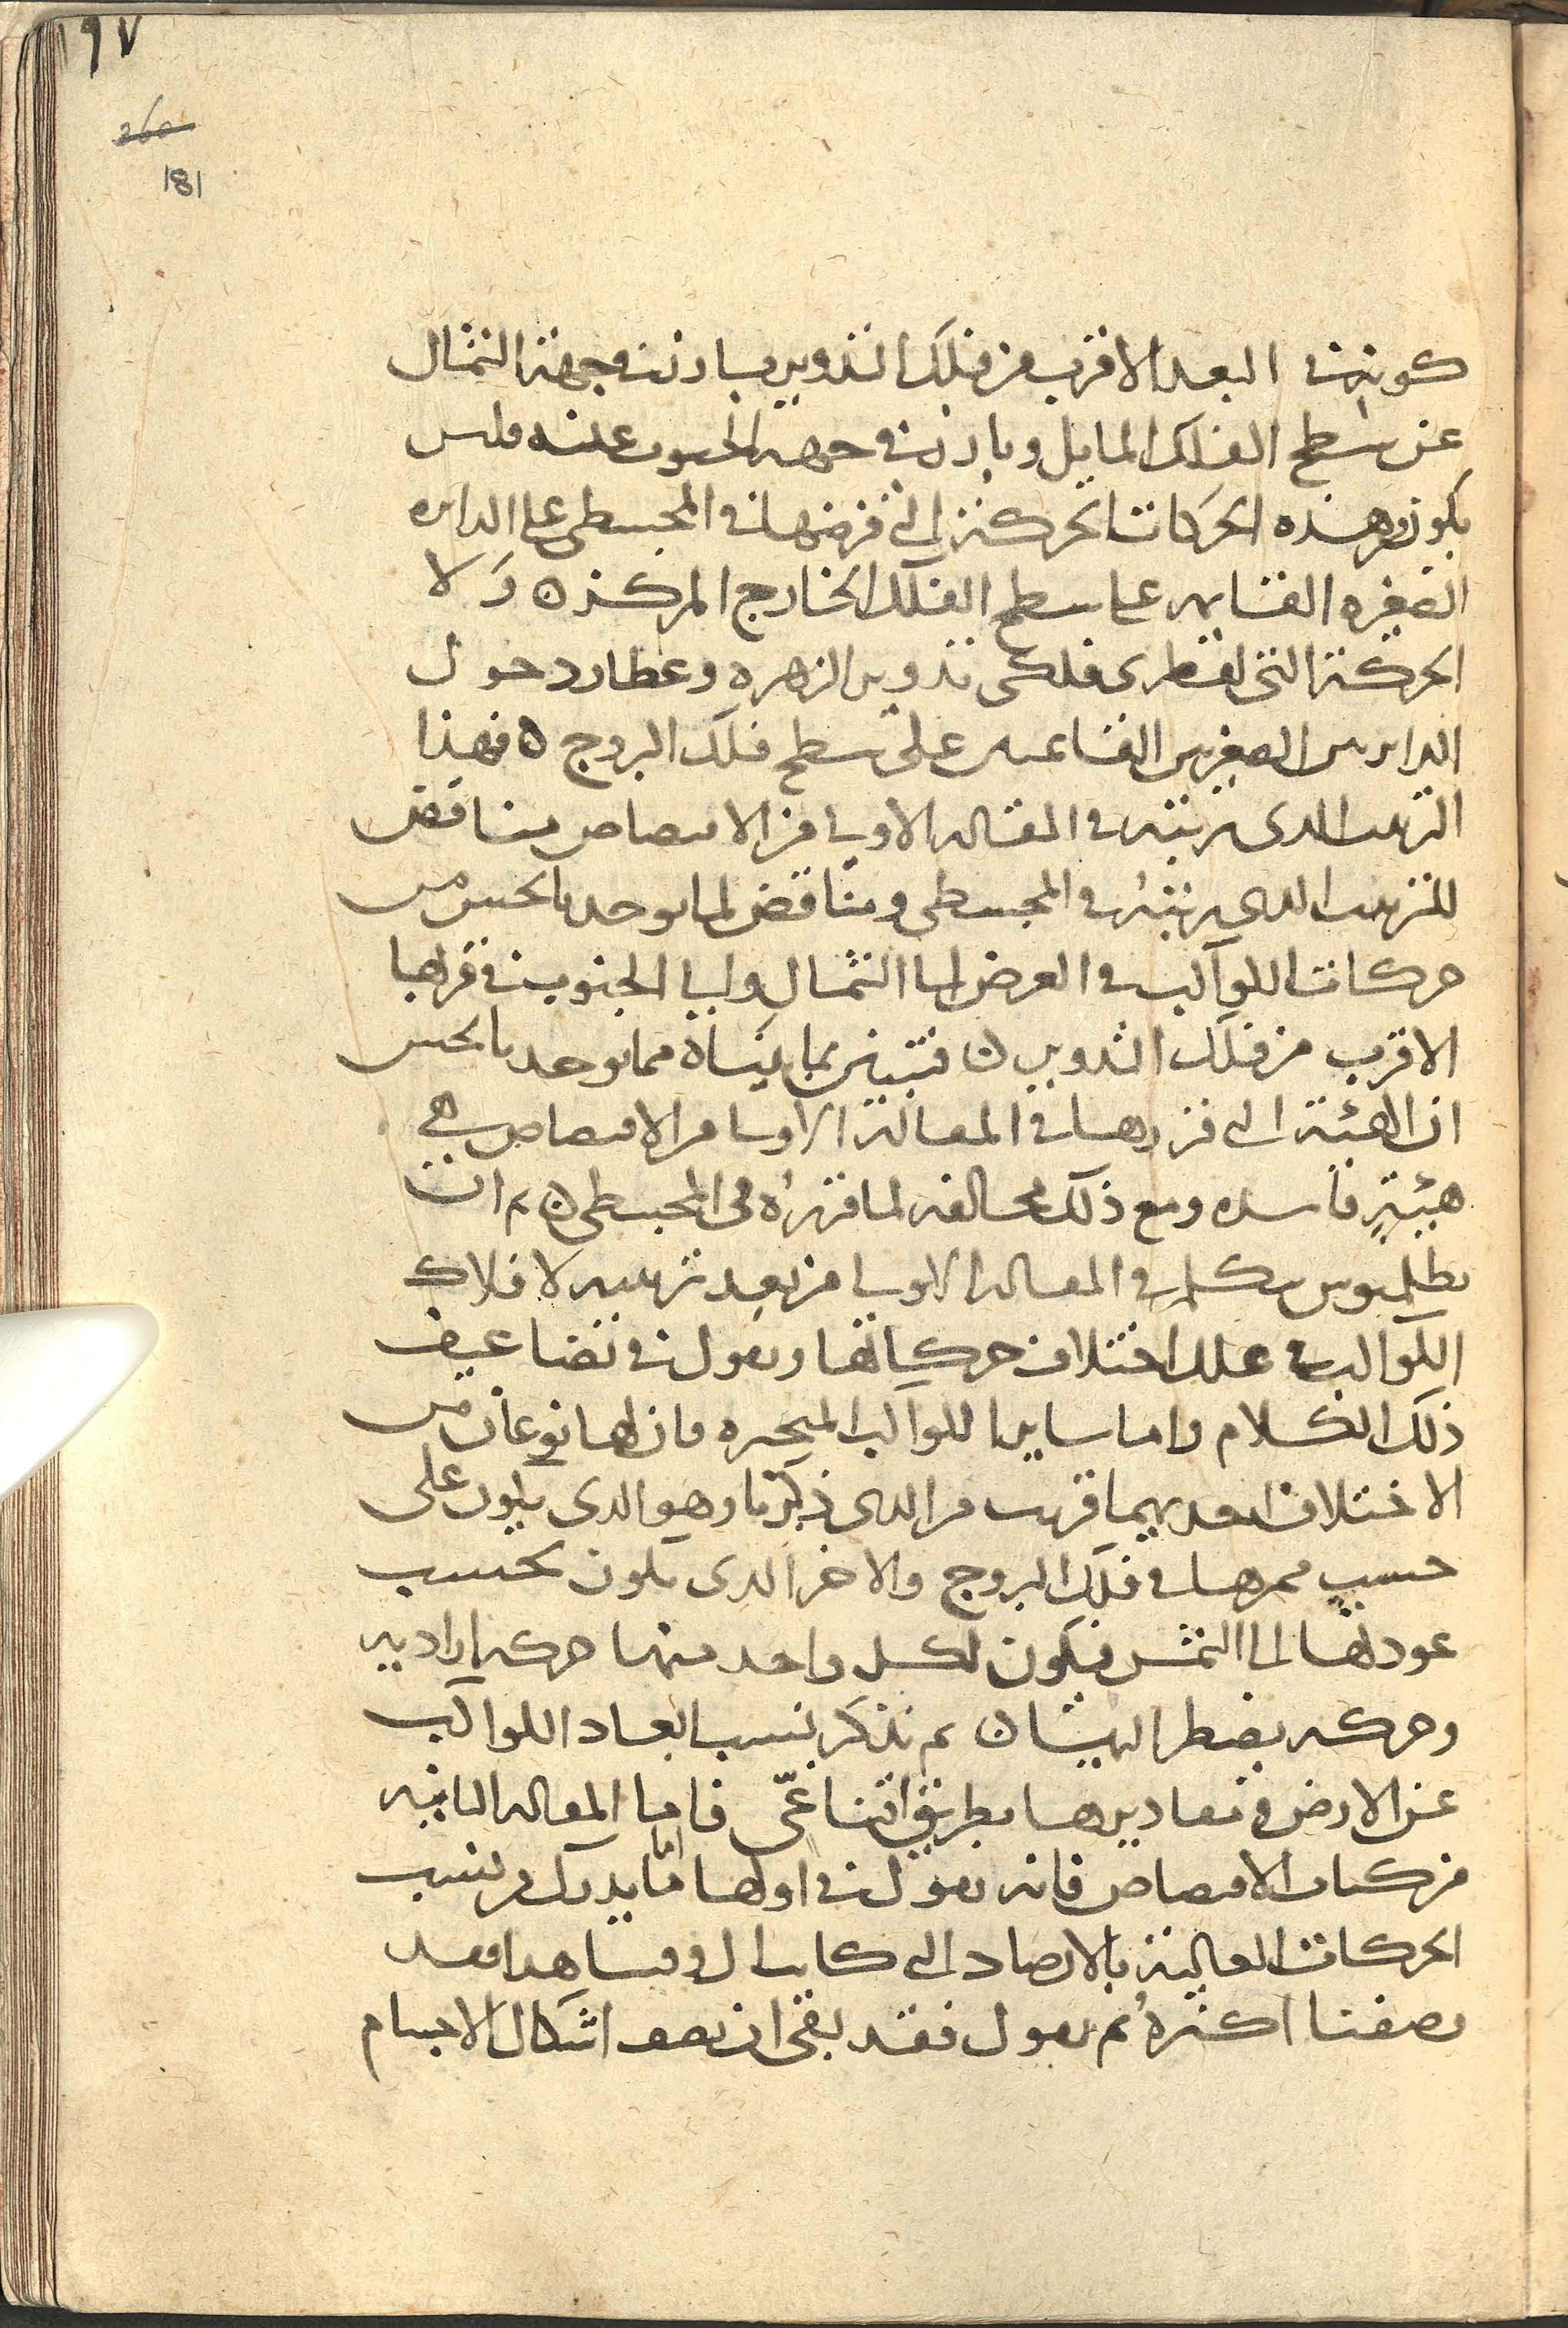 ١٩٧
260
181
كونه في البعد الاقرب من فلك التدوير مباينه في جهة الشمال
عن سطح الفلك المايل وتارة في جهه الجنوب عنه فليس
يكون من هذه الحركات الحركة التي فرضها في المجسطي على الدايره
الصغيره القايمه على سطح الفلك الخارج المركز ه ولا
الحركة التي لقطري فلكي تدوير الزهره وعطارد حول
الدايرتين الصغيرتين القايمتين على سطح فلك البروج ه فهذا
الترتيب الذي رتبه في المقاله الاولى من الاقتصاص مناقض
للترتيب الذي رتبه في المجسطي ومناقض لما يوجد بالحس من
حركات الكواكب في العرض الى الشمال والى الجنوب في قربها
الاقرب من فلك التدوير ه فتبين بما بيناه مما يوجد بالحس
ان الهيئة التي قررها في المقالة الاولى من الاقتصاص هي
هيئة فاسده ومع ذلك مخالفه لما قرره في المجسطي ه ثم ان
بطلميوس يتكلم في المقاله الاولى من بعد ترتيبه لافلاك
الكواكب في علل اختلاف حركاتها ويقول في تضاعيف
ذلك الكلام واما ساير الكواكب المتحيره فان لها نوعان من
الاختلاف احدهما قريب من الذي ذكرنا وهو الذي يكون على
حسب ممرها في فلك البروج والاخر الذي يكون بحسب
عودتها الى الشمس فيكون لكل واحد منها حركه اراديه
وحركه يضطر اليها ه ثم نذكر نسب ابعاد الكواكب
عن الارض ومقاديرها بطريق اقناعي فاما المقاله الثانيه
من كتاب الاقتصاص فانه يقول في اولها اما ما يدرك من نسب
الحركات العالية بالارصاد التي كانت الى وقتنا هذا فقد
وصفنا اكثره ثم يقول فقد بقي ان نصف اشكال الاجسام